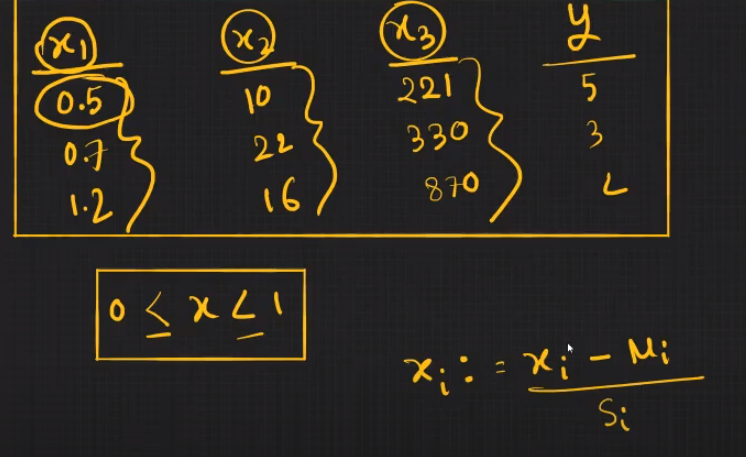 x₁ x₂ x₃ y
0.5 10 221 5
0.7 22 330 3
1.2 16 870 2
0 ≤ x ≤ 1
xᵢ := xᵢ - μᵢ
sᵢ